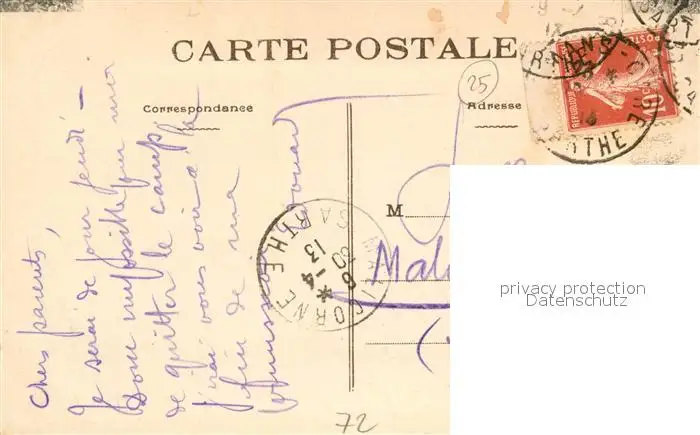 CARTE POSTALE
25
Correspondance
Adresse
Chers parents,
Je serai de jour jeudi –
Donc impossible pour moi
de quitter le camp
j'irai vous voir à la
fin de ma
M
Mal
MALICORNE
SARTHE
8-4
30
13
SARTHE
POSTES
10
privacy protection
Datenschutz
72